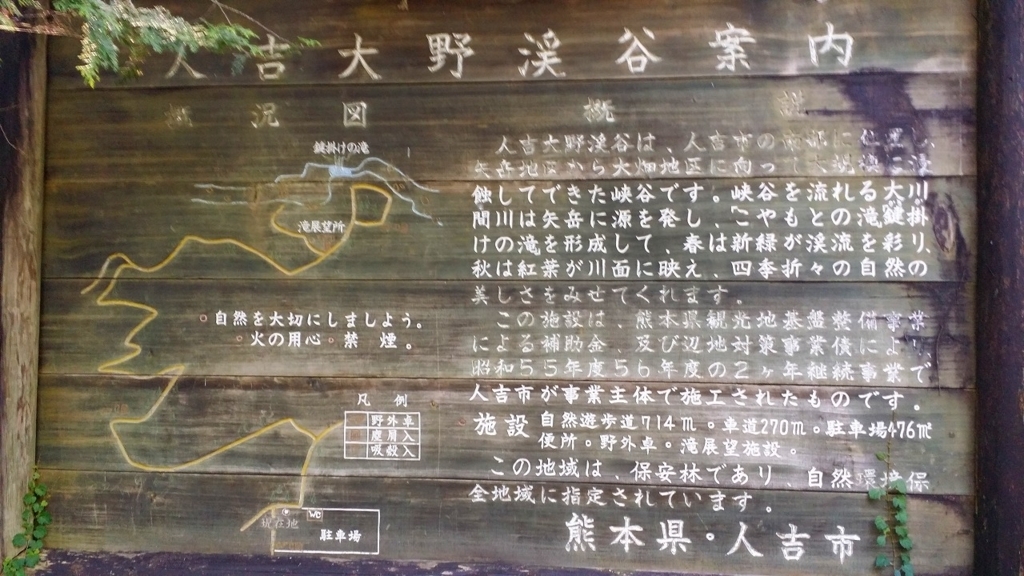 人吉大野渓谷案内
概況図
概
鍵掛けの滝
滝展望所
自然を大切にしましよう。
火の用心 禁煙。
凡例
野外卓
吸殻入
現在地
WC
駐車場
人吉大野渓谷は、人吉市の
矢岳地区から大畑地区に向って
蝕してできた峡谷です。峡谷を流れる大川
間川は矢岳に源を発し、こやもとの滝鍵掛
けの滝を形成して、春は新緑が渓流を彩り、
秋は紅葉が川面に映え、四季折々の自然の
美しさをみせてくれます。
この施設は、熊本県観光地基盤整備事業
による補助金、及び辺地対策事業債により
昭和55年度56年度の2ヶ年継続事業で
人吉市が事業主体で施工されたものです。
施設 自然遊歩道714m。車道270m。駐車場476㎡
便所。野外卓。滝展望施設。
この地域は、保安林であり、自然環境保
全地域に指定されています。
熊本県・人吉市